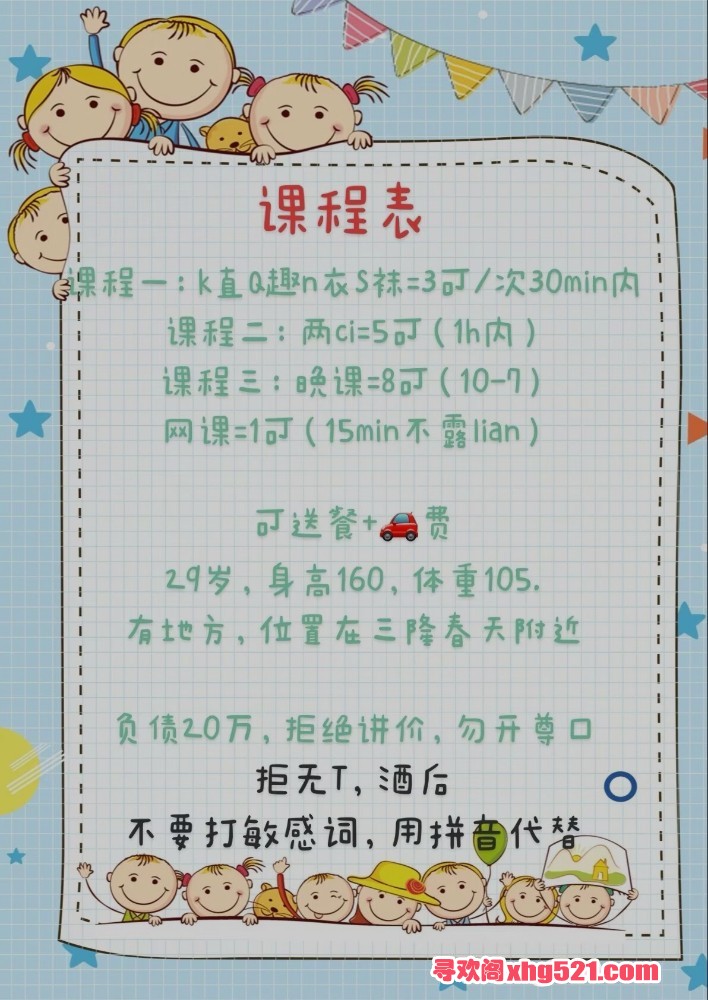 课程表
课程一:k直Q趣n衣S袜=3可/次30min内
课程二:两ci=5可(1h内)
课程三:晚课=8可(10-7)
网课=1可(15min不露lian)
可送餐+🚗费
29岁,身高160,体重105.
有地方,位置在三隆春天附近
负债20万,拒绝讲价,勿开尊口
拒无T,酒后
不要打敏感词,用拼音代替
寻欢阁xhg521.com